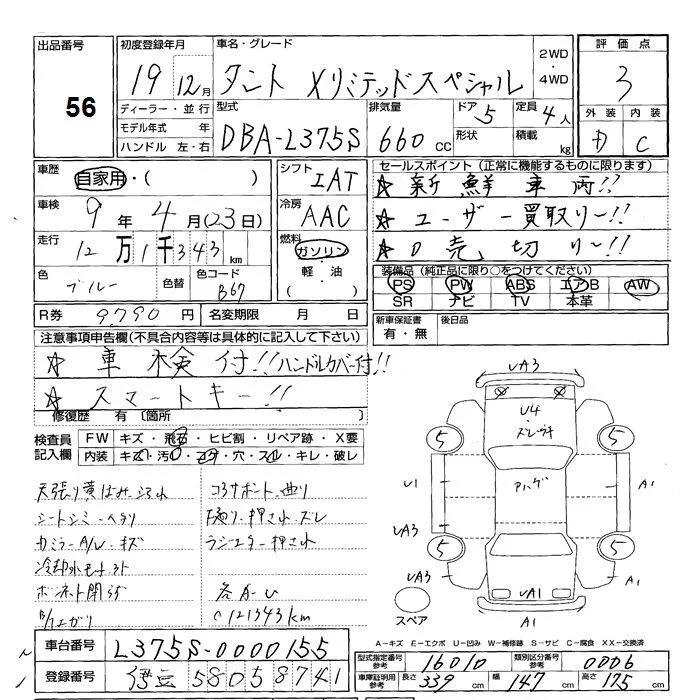 出品番号
56
初度登録年月
19 12月
車名・グレード
タント Xリミテッドスペシャル
2WD
・
4WD
評価点
3
外装 内装
D C
ディーラー・並行
モデル年式 年
ハンドル 左・右
型式
DBA-L375S
排気量
660 CC
ドア 5
形状
定員 4人
積載 kg
車歴
自家用・( )
車検
9年 4月(23日)
走行
12万1千343 km
色
ブルー
色替
色コード
B67
シフト
IAT
冷房
AAC
燃料
ガソリン
・
軽・油
( )
セールスポイント(正常に機能するものに限ります)
☆ 新鮮車両!!
☆ ユーザー買取り〜!!
☆ 売切り〜!!
装備品(純正品に限り○をつけてください)
PS PW ABS エアB AW
SR ナビ TV 本革
R券 9790円
名変期限 月 日
新車保証書
有・無
後日品
注意事項申告欄(不具合内容等は具体的に記入して下さい)
☆ 車検付!!ハンドルカバー付!!
☆ スマートキー!!
修復歴 有(箇所 )
検査員
記入欄
FW キズ・飛石・ヒビ割・リペア跡・X要
内装 キズ・汚・コゲ・穴・スレ・キレ・破レ
天張り黄ばみ
シートシミ・ヘタリ
カミラーA/W・キズ
冷却水
ボンネット閉
コアサポート・曲り
押され・ズレ
ラジエター押され
各A・U
○121343km
UA3
U4
5
5
U1
ハゲ
A1
UA3
5
5
UA3
UA1
A1
A1
スペア
A-キズ E-エクボ U-凹み W-補修跡 S-サビ C-腐食 XX-交換済
車台番号 L375S-0000155
登録番号 伊豆 580 58741
型式指定番号
参考
16010
類別区分番号
参考
0006
車庫証明用
参考
長さ 339 cm
幅 147 cm
高さ 175 cm